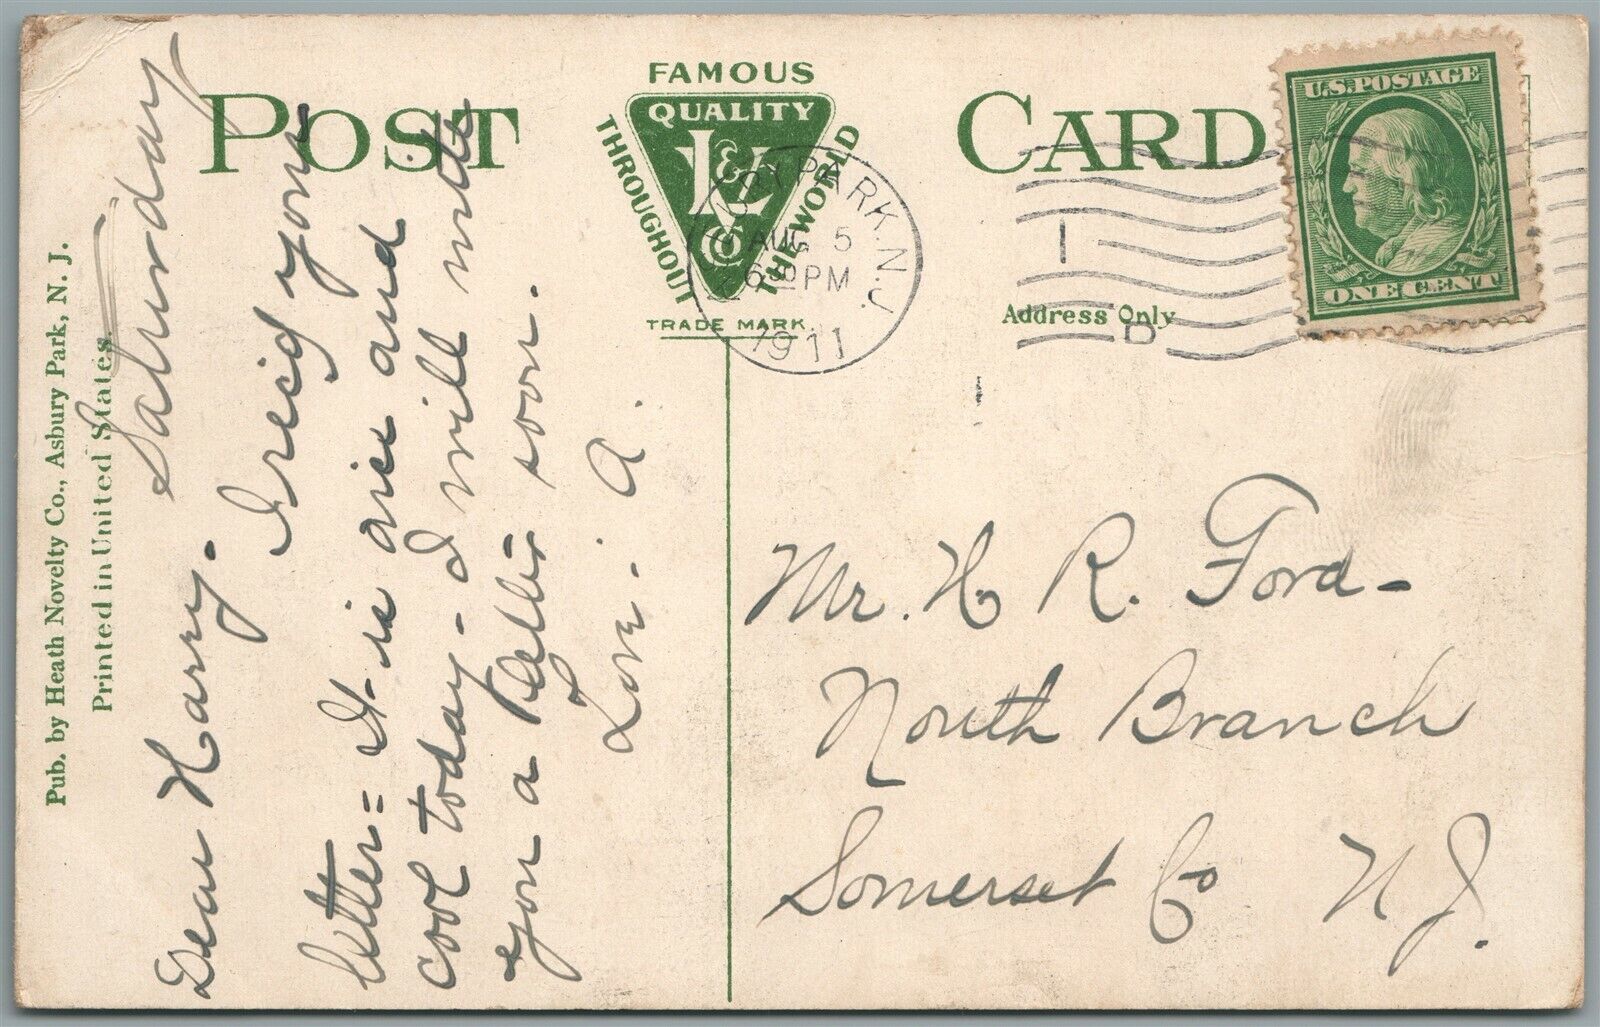 POST CARD
FAMOUS
QUALITY
THROUGHOUT
THE WORLD
L & Co
TRADE MARK.
Address Only
U.S. POSTAGE
ONE CENT
PARK, N.J.
AUG 5
6 30 PM
1911
1
D
Pub. by Heath Novelty Co., Asbury Park, N. J.
Printed in United States.
Saturday
Dear Harry.
I rec'd your
letter = It is nice and
cool today - I will write
you a letter soon.
Love. A.
Mr. H. R. Ford -
North Branch
Somerset Co
N J.